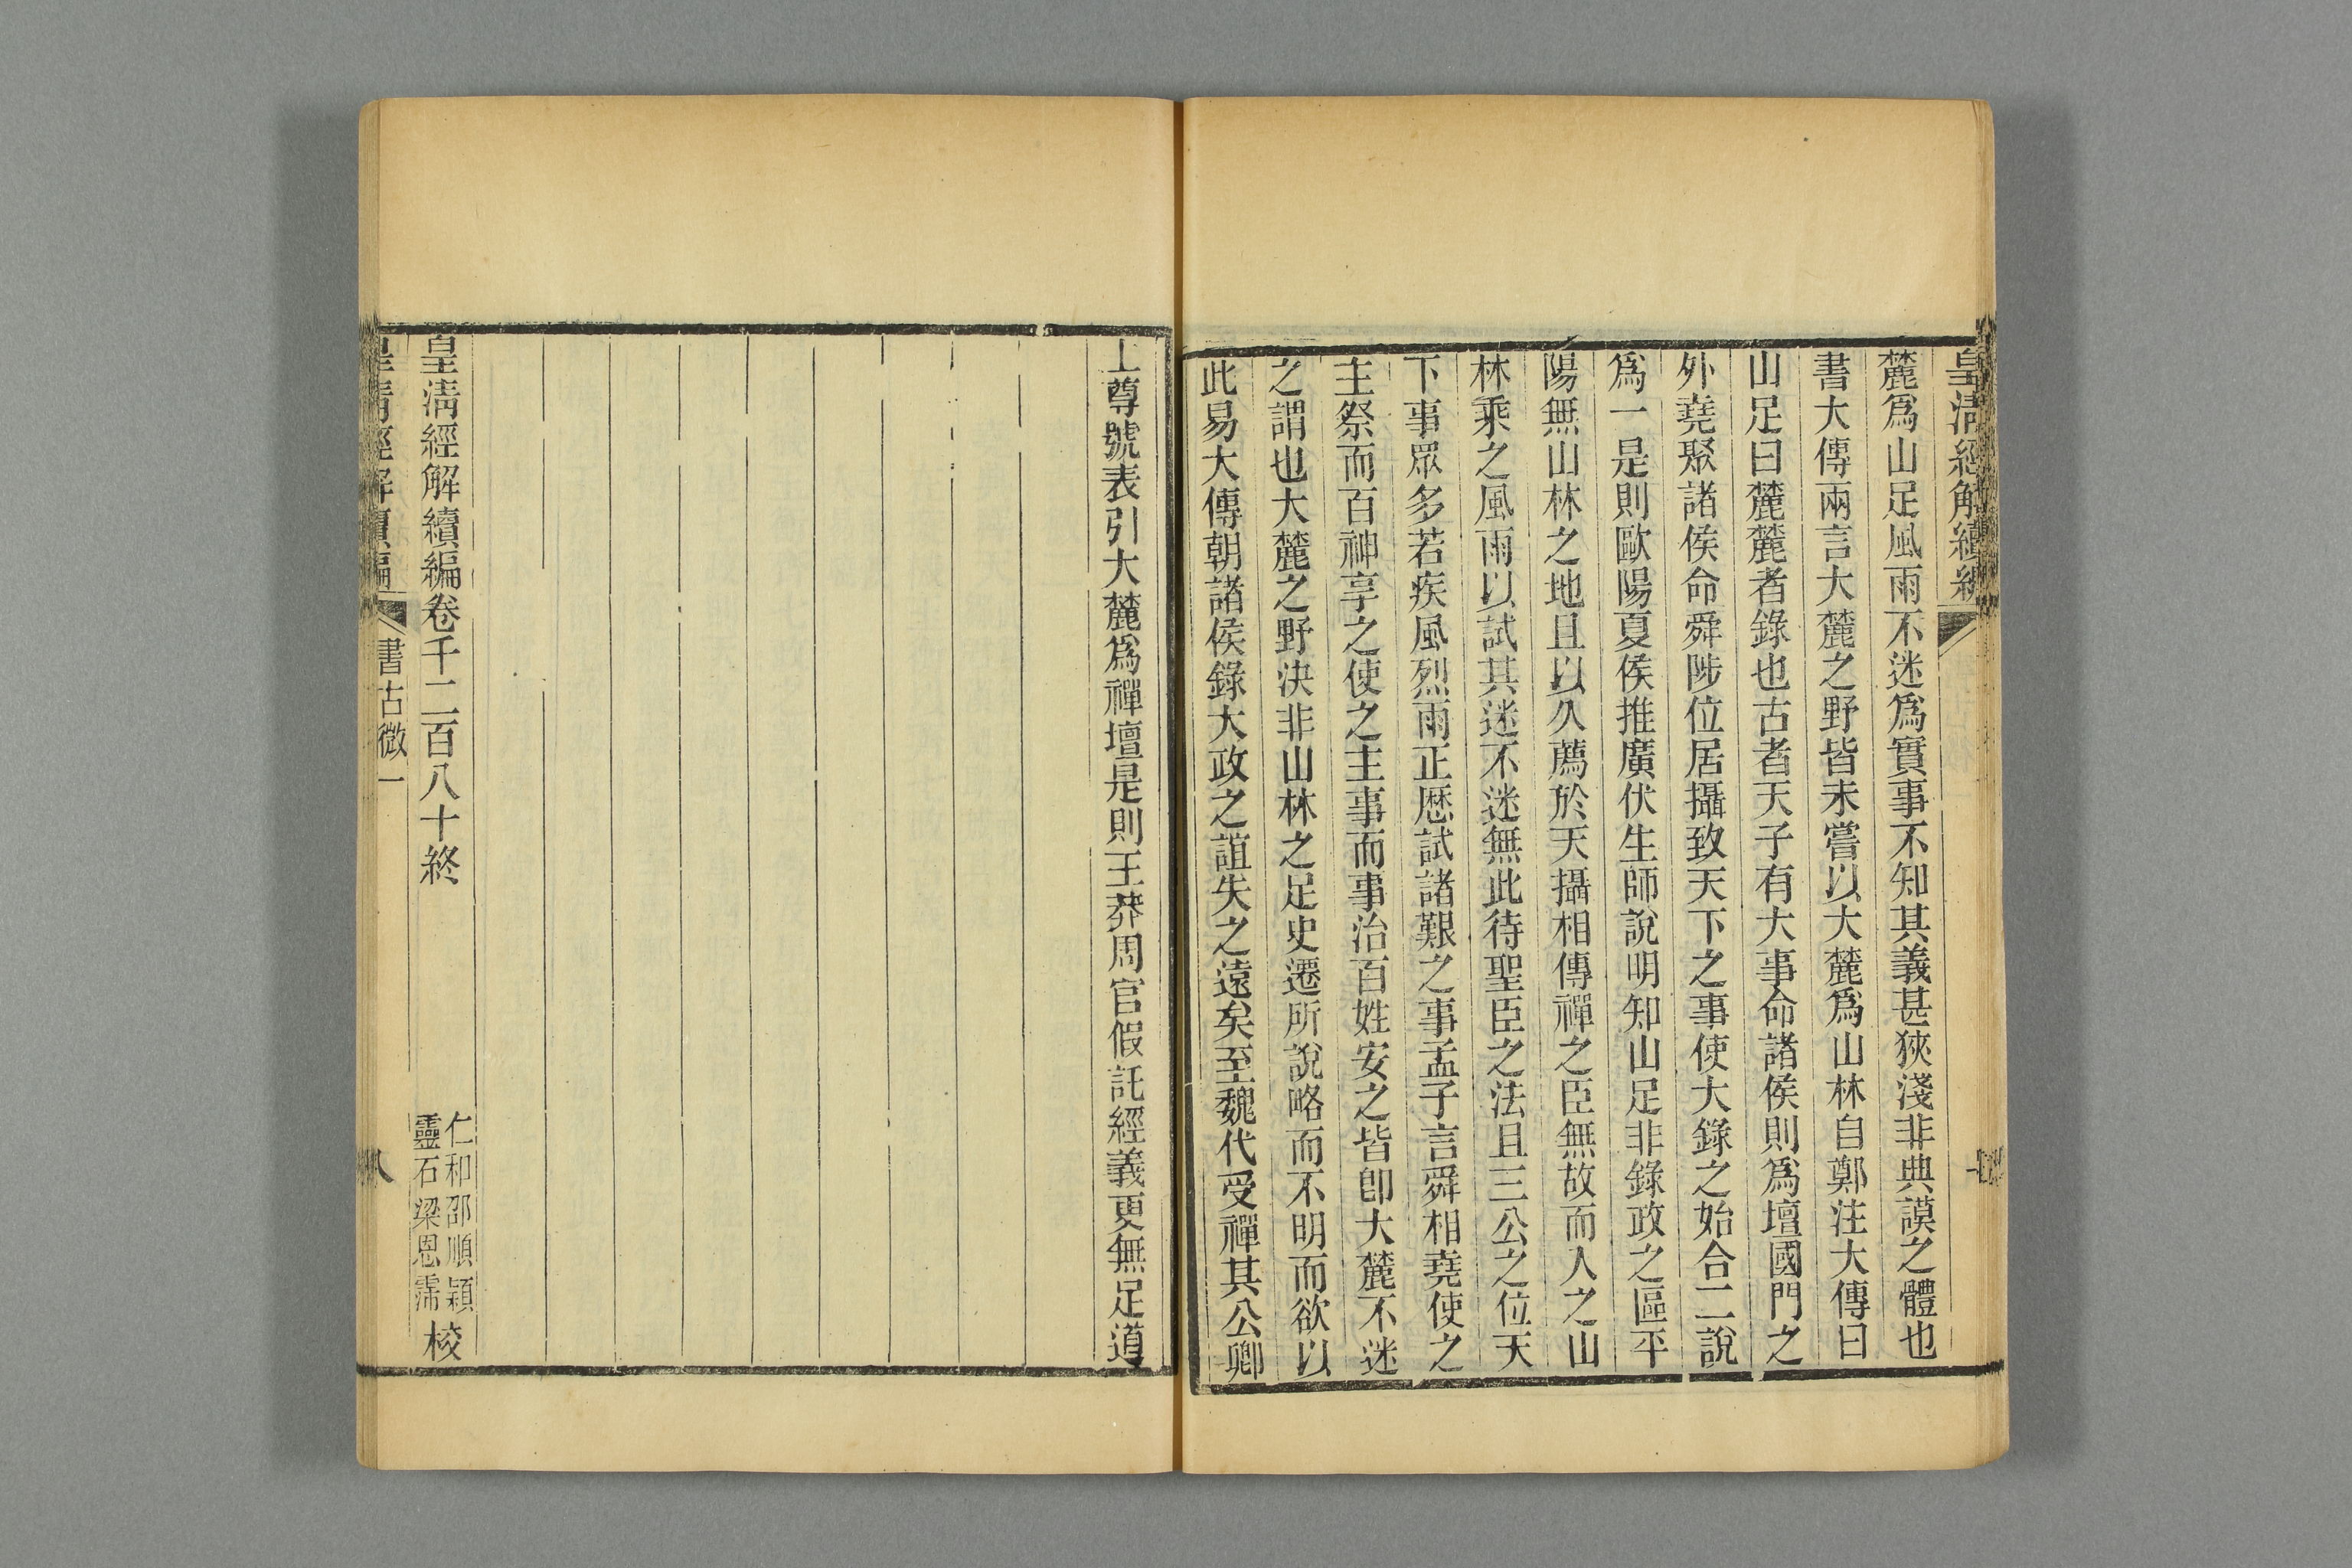 皇清經解續編
麓爲山足風雨不迷爲實事不知其義甚狹淺非典謨之體也
書大傳兩言大麓之野皆未嘗以大麓爲山林自鄭注大傳曰
山足曰麓麓者錄也古者天子有大事命諸侯則爲壇國門之
外堯聚諸侯命舜陟位居攝致天下之事使大錄之始合二說
爲一是則歐陽夏侯推廣伏生師說明知山足非錄政之區平
陽無山林之地且以久薦於天攝相傳禪之臣無故而入之山
林乘之風雨以試其迷不迷無此待聖臣之法且三公之位天
下事眾多若疾風烈雨正歷試諸艱之事孟子言舜相堯使之
主祭而百神享之使之主事而事治百姓安之皆卽大麓不迷
之謂也大麓之野決非山林之足史遷所說略而不明而欲以
此易大傳朝諸侯錄大政之誼失之遠矣至魏代受禪其公卿
上尊號表引大麓爲禪壇是則王莽周官假託經義更無足道
皇清經解續編卷千二百八十終
仁和邵順穎
靈石梁恩霈
校
皇清經解續編
書古微一
八